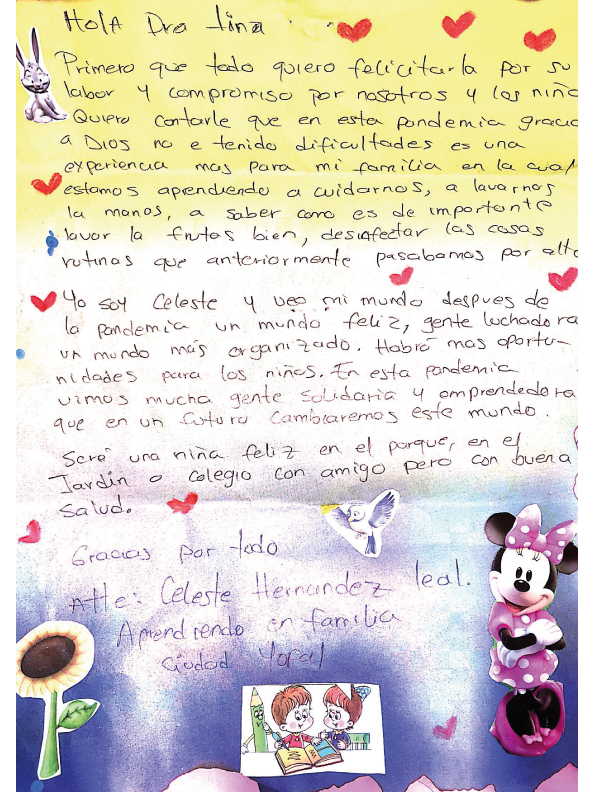 Hola Dra tina
Primero que todo quiero felicitarla por su
labor y compromiso por nosotros y los niño
Quiero contarle que en esta pandemia gracia
a Dios no e tenido dificultades es una
experiencia mas para mi familia en la cual
estamos aprendiendo a cuidarnos, a lavarnos
la manos, a saber como es de importante
lavar la frutas bien, desinfectar las cosas
rutinas que anteriormente pasabamos por alto
Yo soy Celeste y veo mi mundo despues de
la pandemia un mundo feliz, gente luchadora
un mundo más organizado. Habrá mas oportu-
nidades para los niños. En esta pandemia
vimos mucha gente solidaria y emprendedora
que en un futuro cambiaremos este mundo.
Seré una niña feliz en el parque, en el
Jardín o colegio con amigo pero con buena
salud.
Gracias por todo
Atte: Celeste Hernandez leal.
Aprendiendo en familia
Ciudad